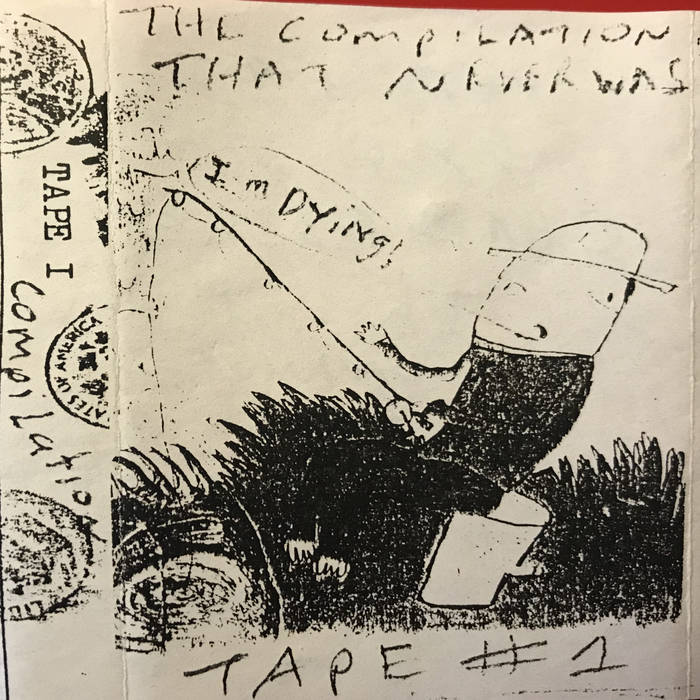 THE COMPILATION
THAT NEVER WAS
I'm DYING!
TAPE #1
TAPE I
Compilation
ATES OF AMERICA